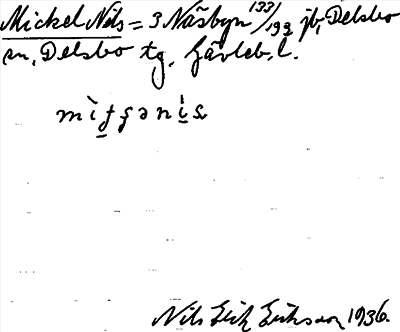 Mickel Nils = 3 Näsbyn 133/192 jb, Delsbo
sn, Delsbo tg, Gävleb. l.
Nils Erik Eriksson 1936.